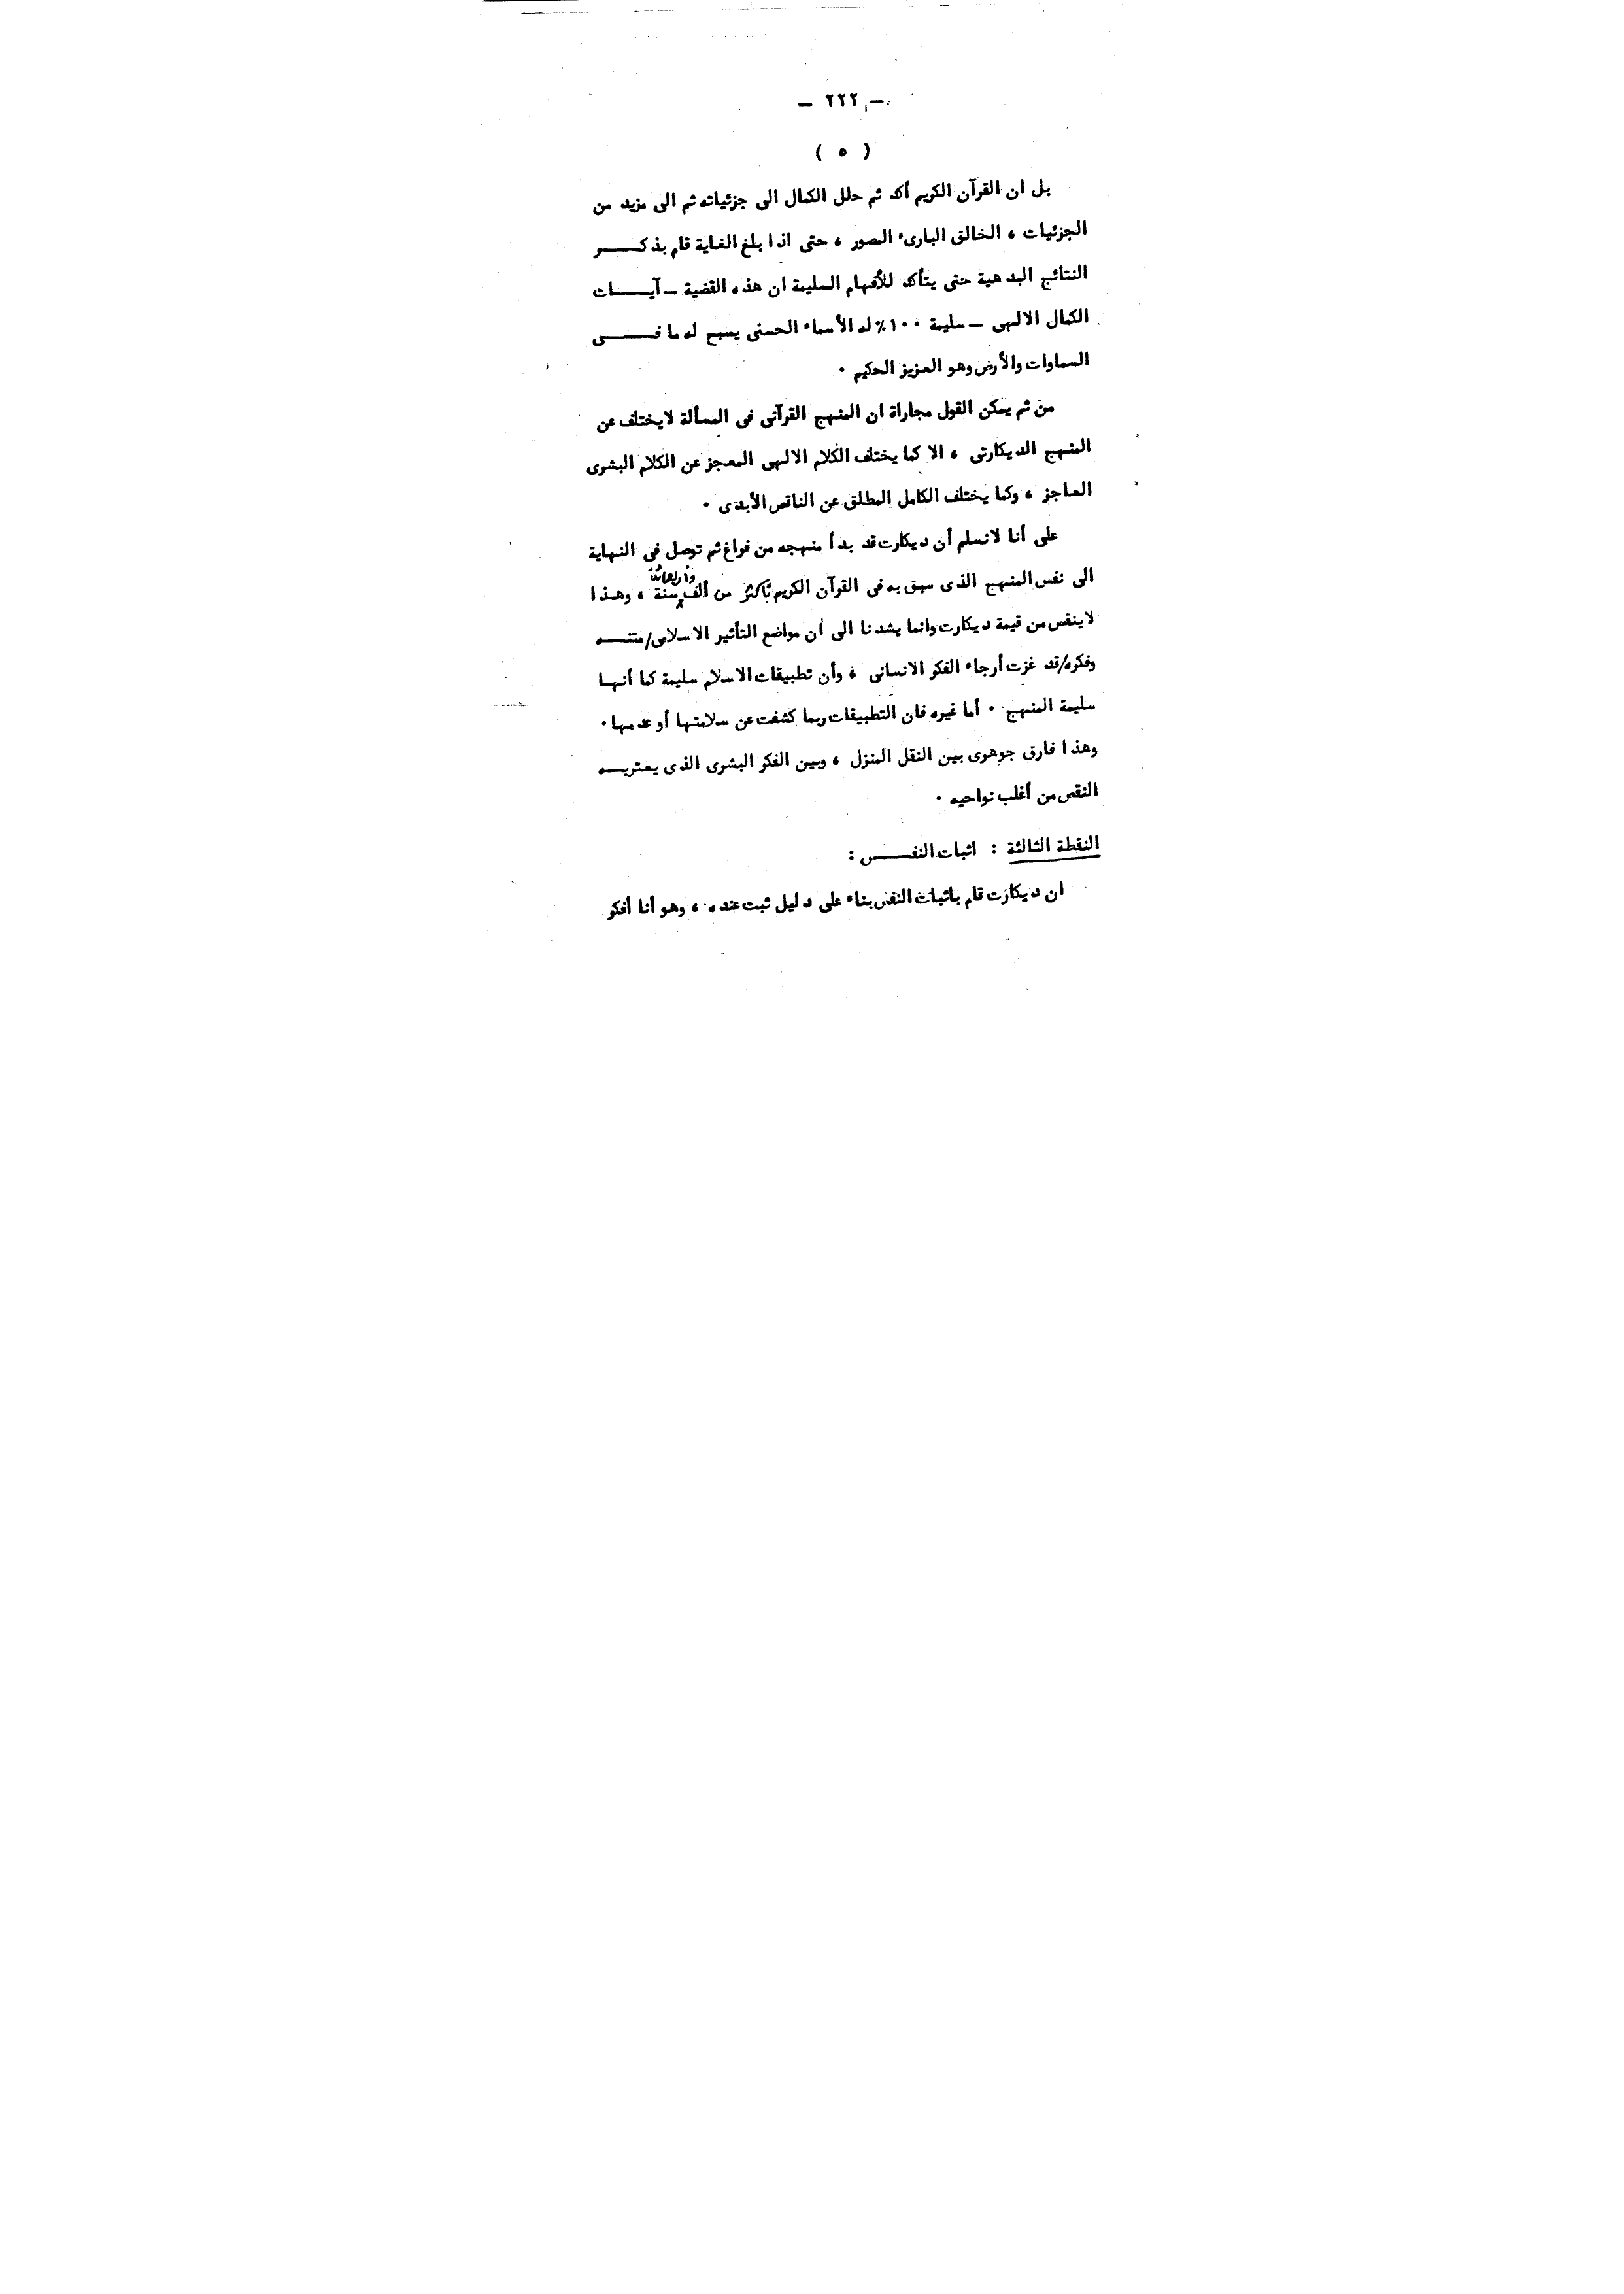 — ٢٢٢ —
( ٥ )
بل ان القرآن الكريم أكد ثم حلل الكمال الى جزئياته ثم الى مزيد من
الجزئيات ، الخالق البارىء المصور ، حتى اذا بلغ الغاية قام بذكـــــر
النتائج البدهية حتى يتأكد للأفهام السليمة ان هذه القضية ــ آيـــــات
الكمال الالهى ــ سليمة ١٠٠٪ له الأسماء الحسنى يسبح له ما فـــــى
السماوات والأرض وهو العزيز الحكيم ٠
من ثم يمكن القول مجاراة ان المنهج القرآنى فى المسألة لايختلف عن
المنهج الديكارتى ، الا كما يختلف الكلام الالهى المعجز عن الكلام البشرى
العاجز ، وكما يختلف الكامل المطلق عن الناقص الأبدى ٠
على أنا لانسلم أن ديكارت قد بدأ منهجه من فراغ ثم توصل فى النهاية
الى نفس المنهج الذى سبق به فى القرآن الكريم بأكثر من ألف وأربعمائة سنة ، وهذا
لاينقص من قيمة ديكارت وانما يشدنا الى أن مواضع التأثير الاسلامى/متنـــه
وفكره/قد غزت أرجاء الفكر الانسانى ، وأن تطبيقات الاسلام سليمة كما أنهــا
سليمة المنهج ٠ أما غيره فان التطبيقات ربما كشفت عن سلامتها أو عدمها ٠
وهذا فارق جوهرى بين النقل المنزل ، وبين الفكر البشرى الذى يعتريـــه
النقص من أغلب نواحيه ٠
النقطة الثالثة : اثبات النفـــــس :
ان ديكارت قام باثبات النفس بناء على دليل ثبت عنده ، وهو أنا أفكر